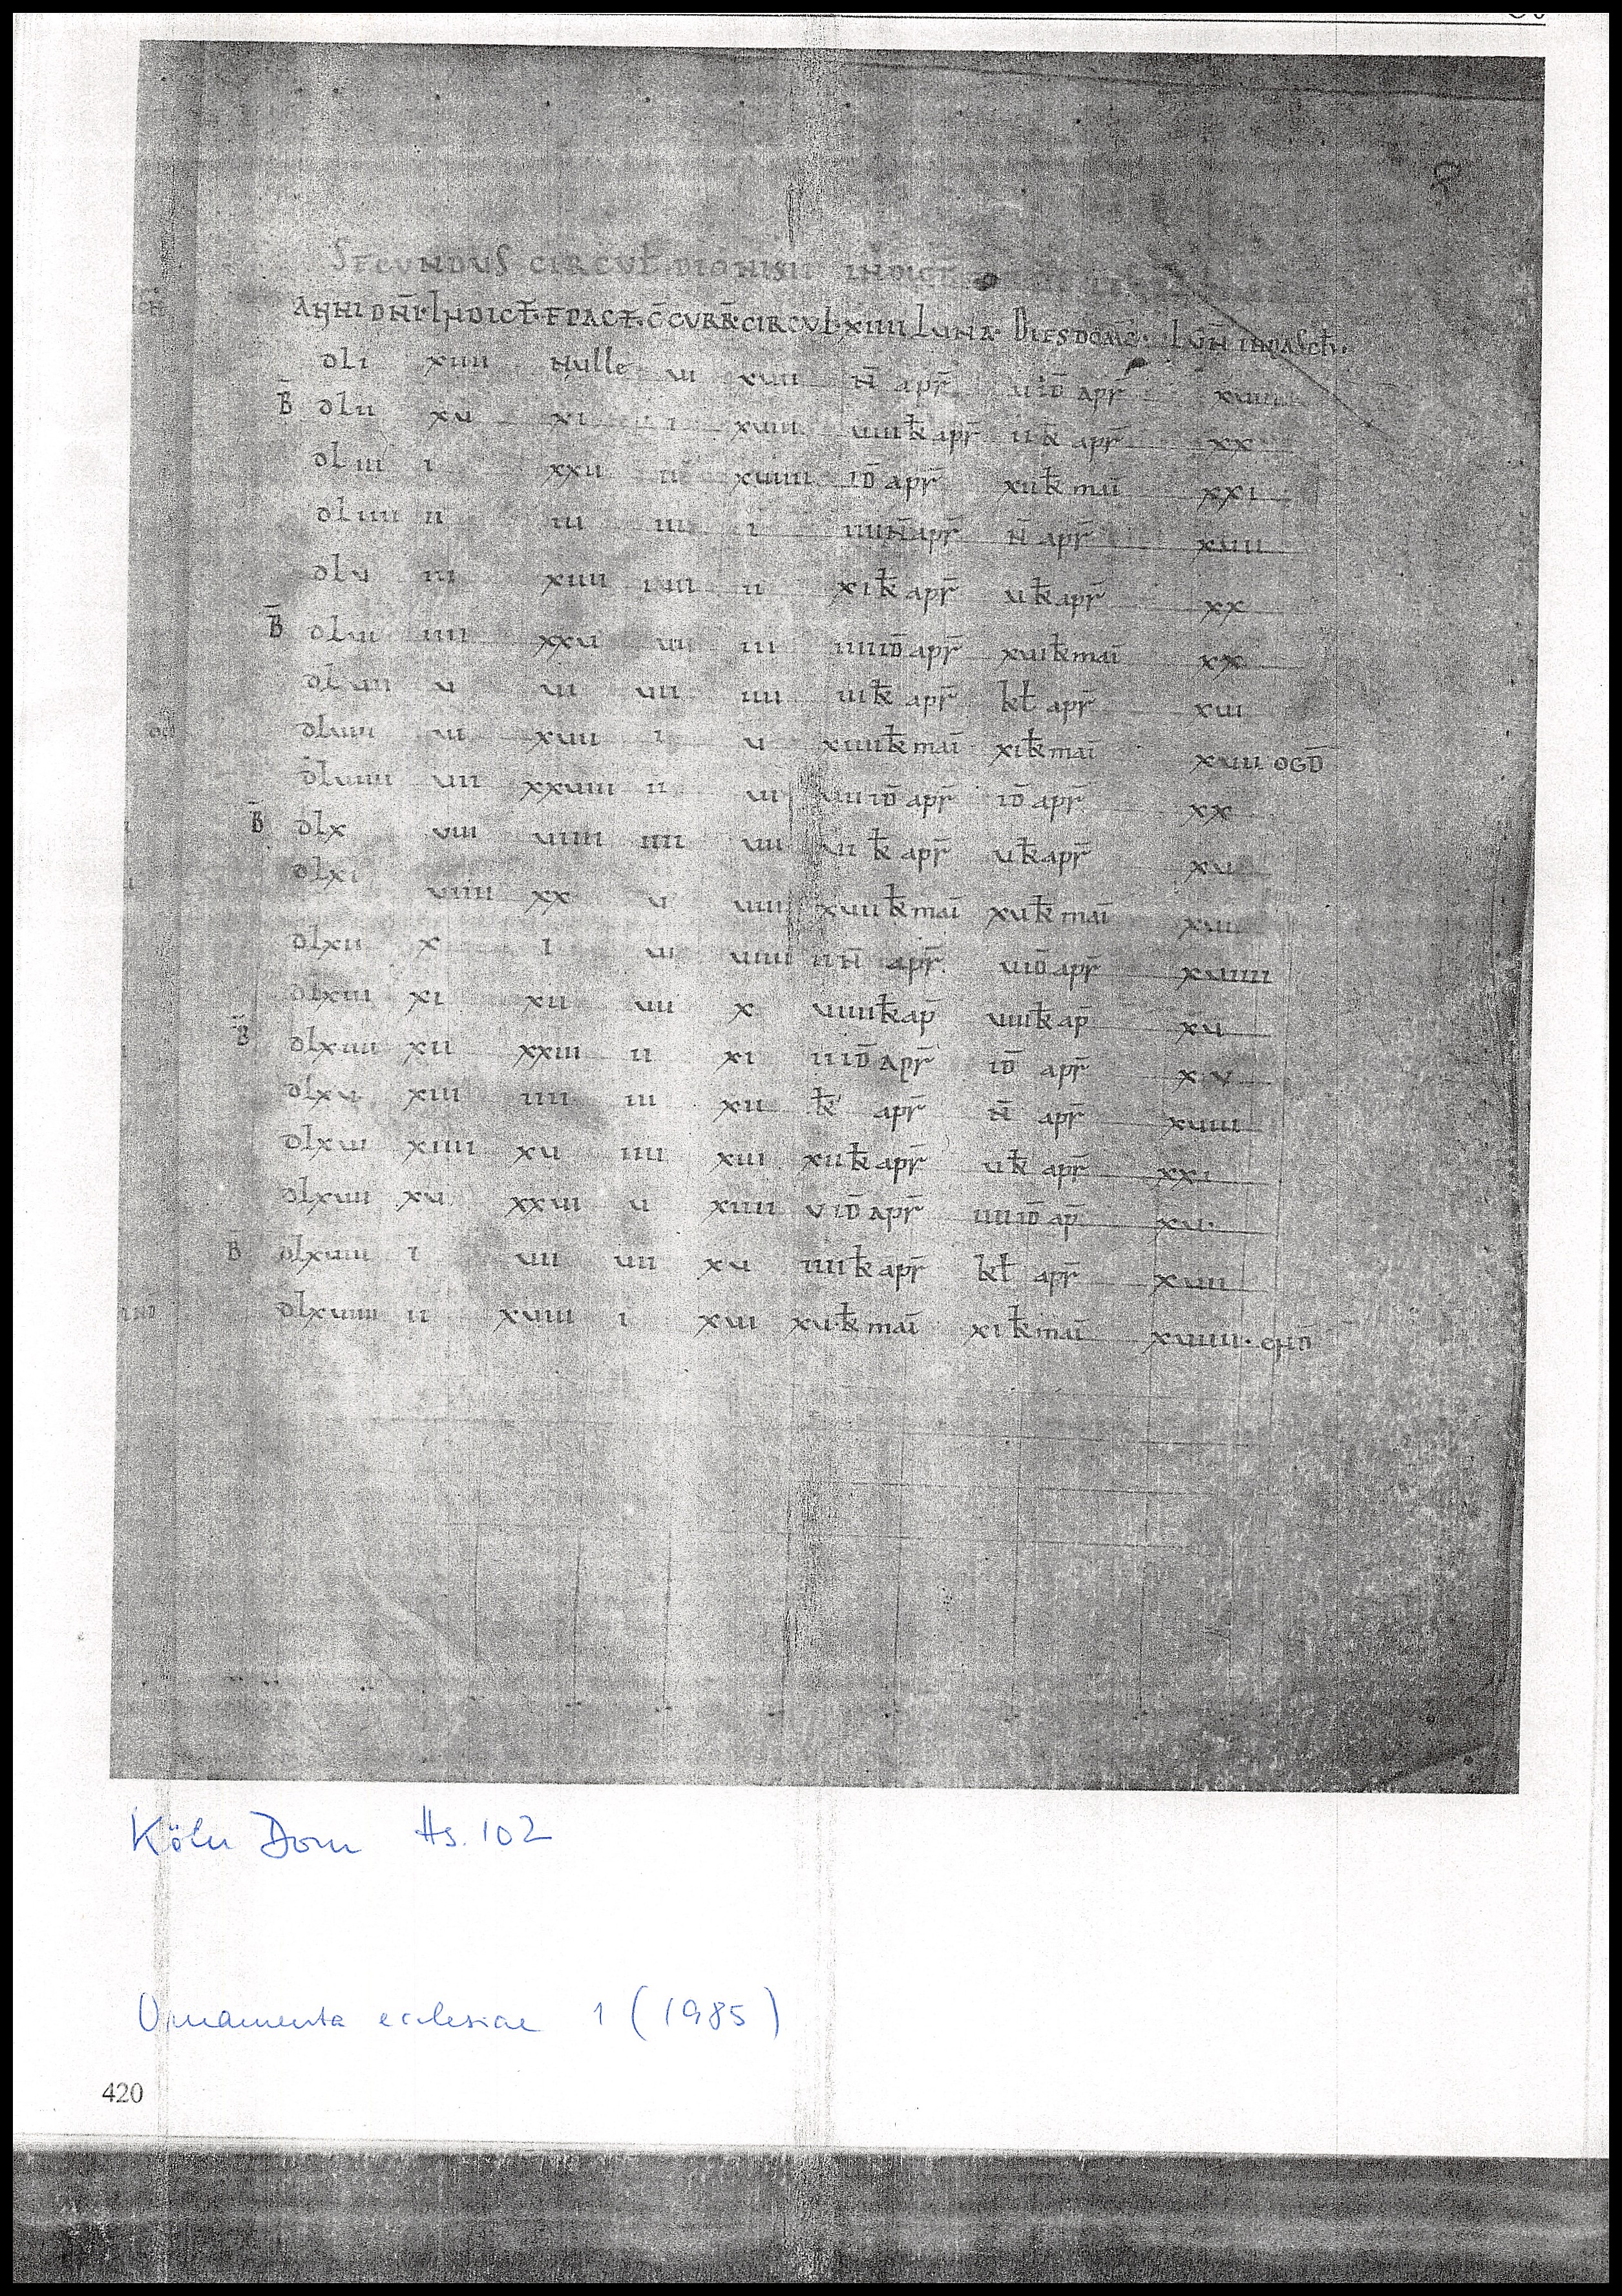 SECUNDUS CIRCUL̄ DIONISII INDICT̄
ANNI DN̄I· INDICT̄· EPACT̄· C̄CURR̄· CIRCUL̄· XIIII LUNA· DIES DOMC̄· LUN̄ IN PASCH̄·
dli xiiii nulle vi xvii N̄ apr̄ v iD̄ apr̄ xviiii
B̄ dlii xv xi i xviii viiii k̄ apr̄ ii k̄ apr̄ xx
dliii i xxii ii xviiii iD̄ apr̄ xii k̄ mai xxi
dliiii ii iii iii i iiii N̄ apr̄ N̄ apr̄ xvii
dlv iii xiiii iiii ii xi k̄ apr̄ v k̄ apr̄ xx
B̄ dlvi iiii xxv vi iii iiii iD̄ apr̄ xvi k̄ mai xx
dlvii v vi vii iiii iii k̄ apr̄ kł apr̄ xvi
dlviii vi xvii i v xiiii k̄ mai xi k̄ mai xvii OGD̄
dlviiii vii xxviii ii vi vii iD̄ apr̄ iD̄ apr̄ xx
B̄ dlx viii viiii iiii vii vi k̄ apr̄ v k̄ apr̄ xv
dlxi viiii xx v viii xvii k̄ mai xv k̄ mai xvi
dlxii x i vi viiii ii N̄ apr̄ v iD̄ apr̄ xviiii
dlxiii xi xii vii x viiii k̄ ap̄ viii k̄ ap̄ xv
B̄ dlxiiii xii xxiii ii xi ii iD̄ apr̄ iD̄ apr̄ xv
dlxv xiii iiii iii xii k̄ apr̄ N̄ apr̄ xviii
dlxvi xiiii xv iiii xiii xii k̄ apr̄ v k̄ apr̄ xxi
dlxvii xv xxvi v xiiii v iD̄ apr̄ iiii iD̄ ap̄ xv·
B̄ dlxviii i vii vii xv iiii k̄ apr̄ kł apr̄ xvii
dlxviiii ii xviii i xvi xv k̄ mai xi k̄ mai xviii· END̄
Köln Dom Hs. 102
Ornamenta ecclesiae 1 (1985)
420